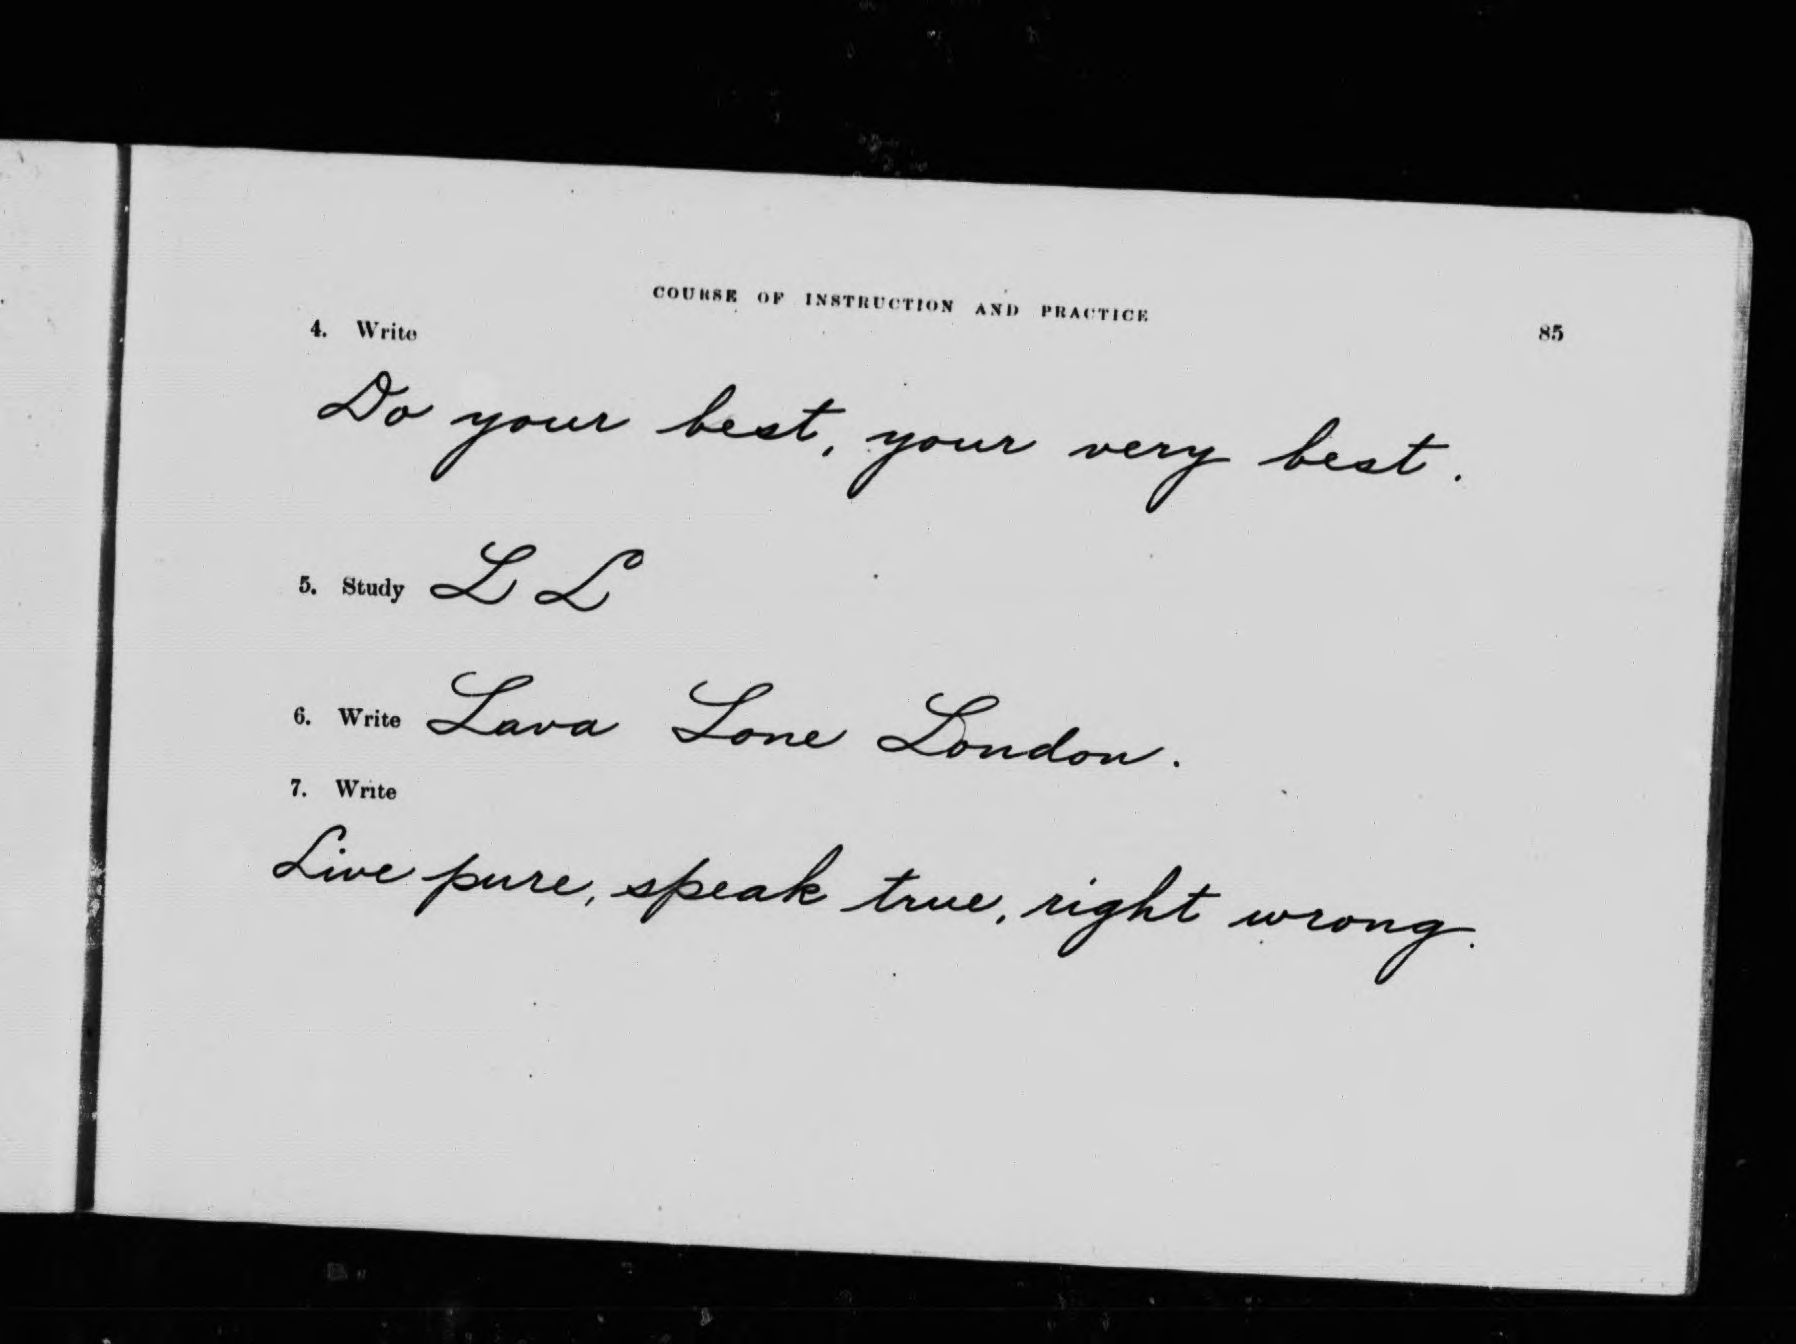 COURSE OF INSTRUCTION AND PRACTICE 85
4. Write
Do your best, your very best.
5. Study L L
6. Write Lava Lone London.
7. Write
Live pure, speak true, right wrong.